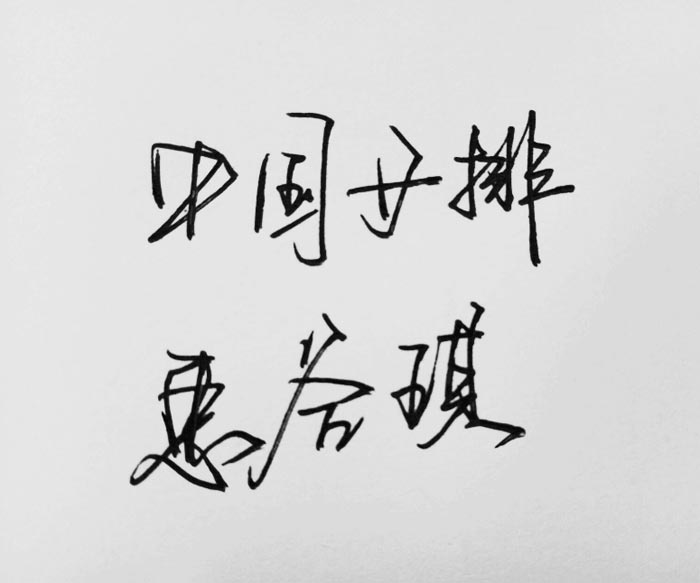 中国女排
惠若琪